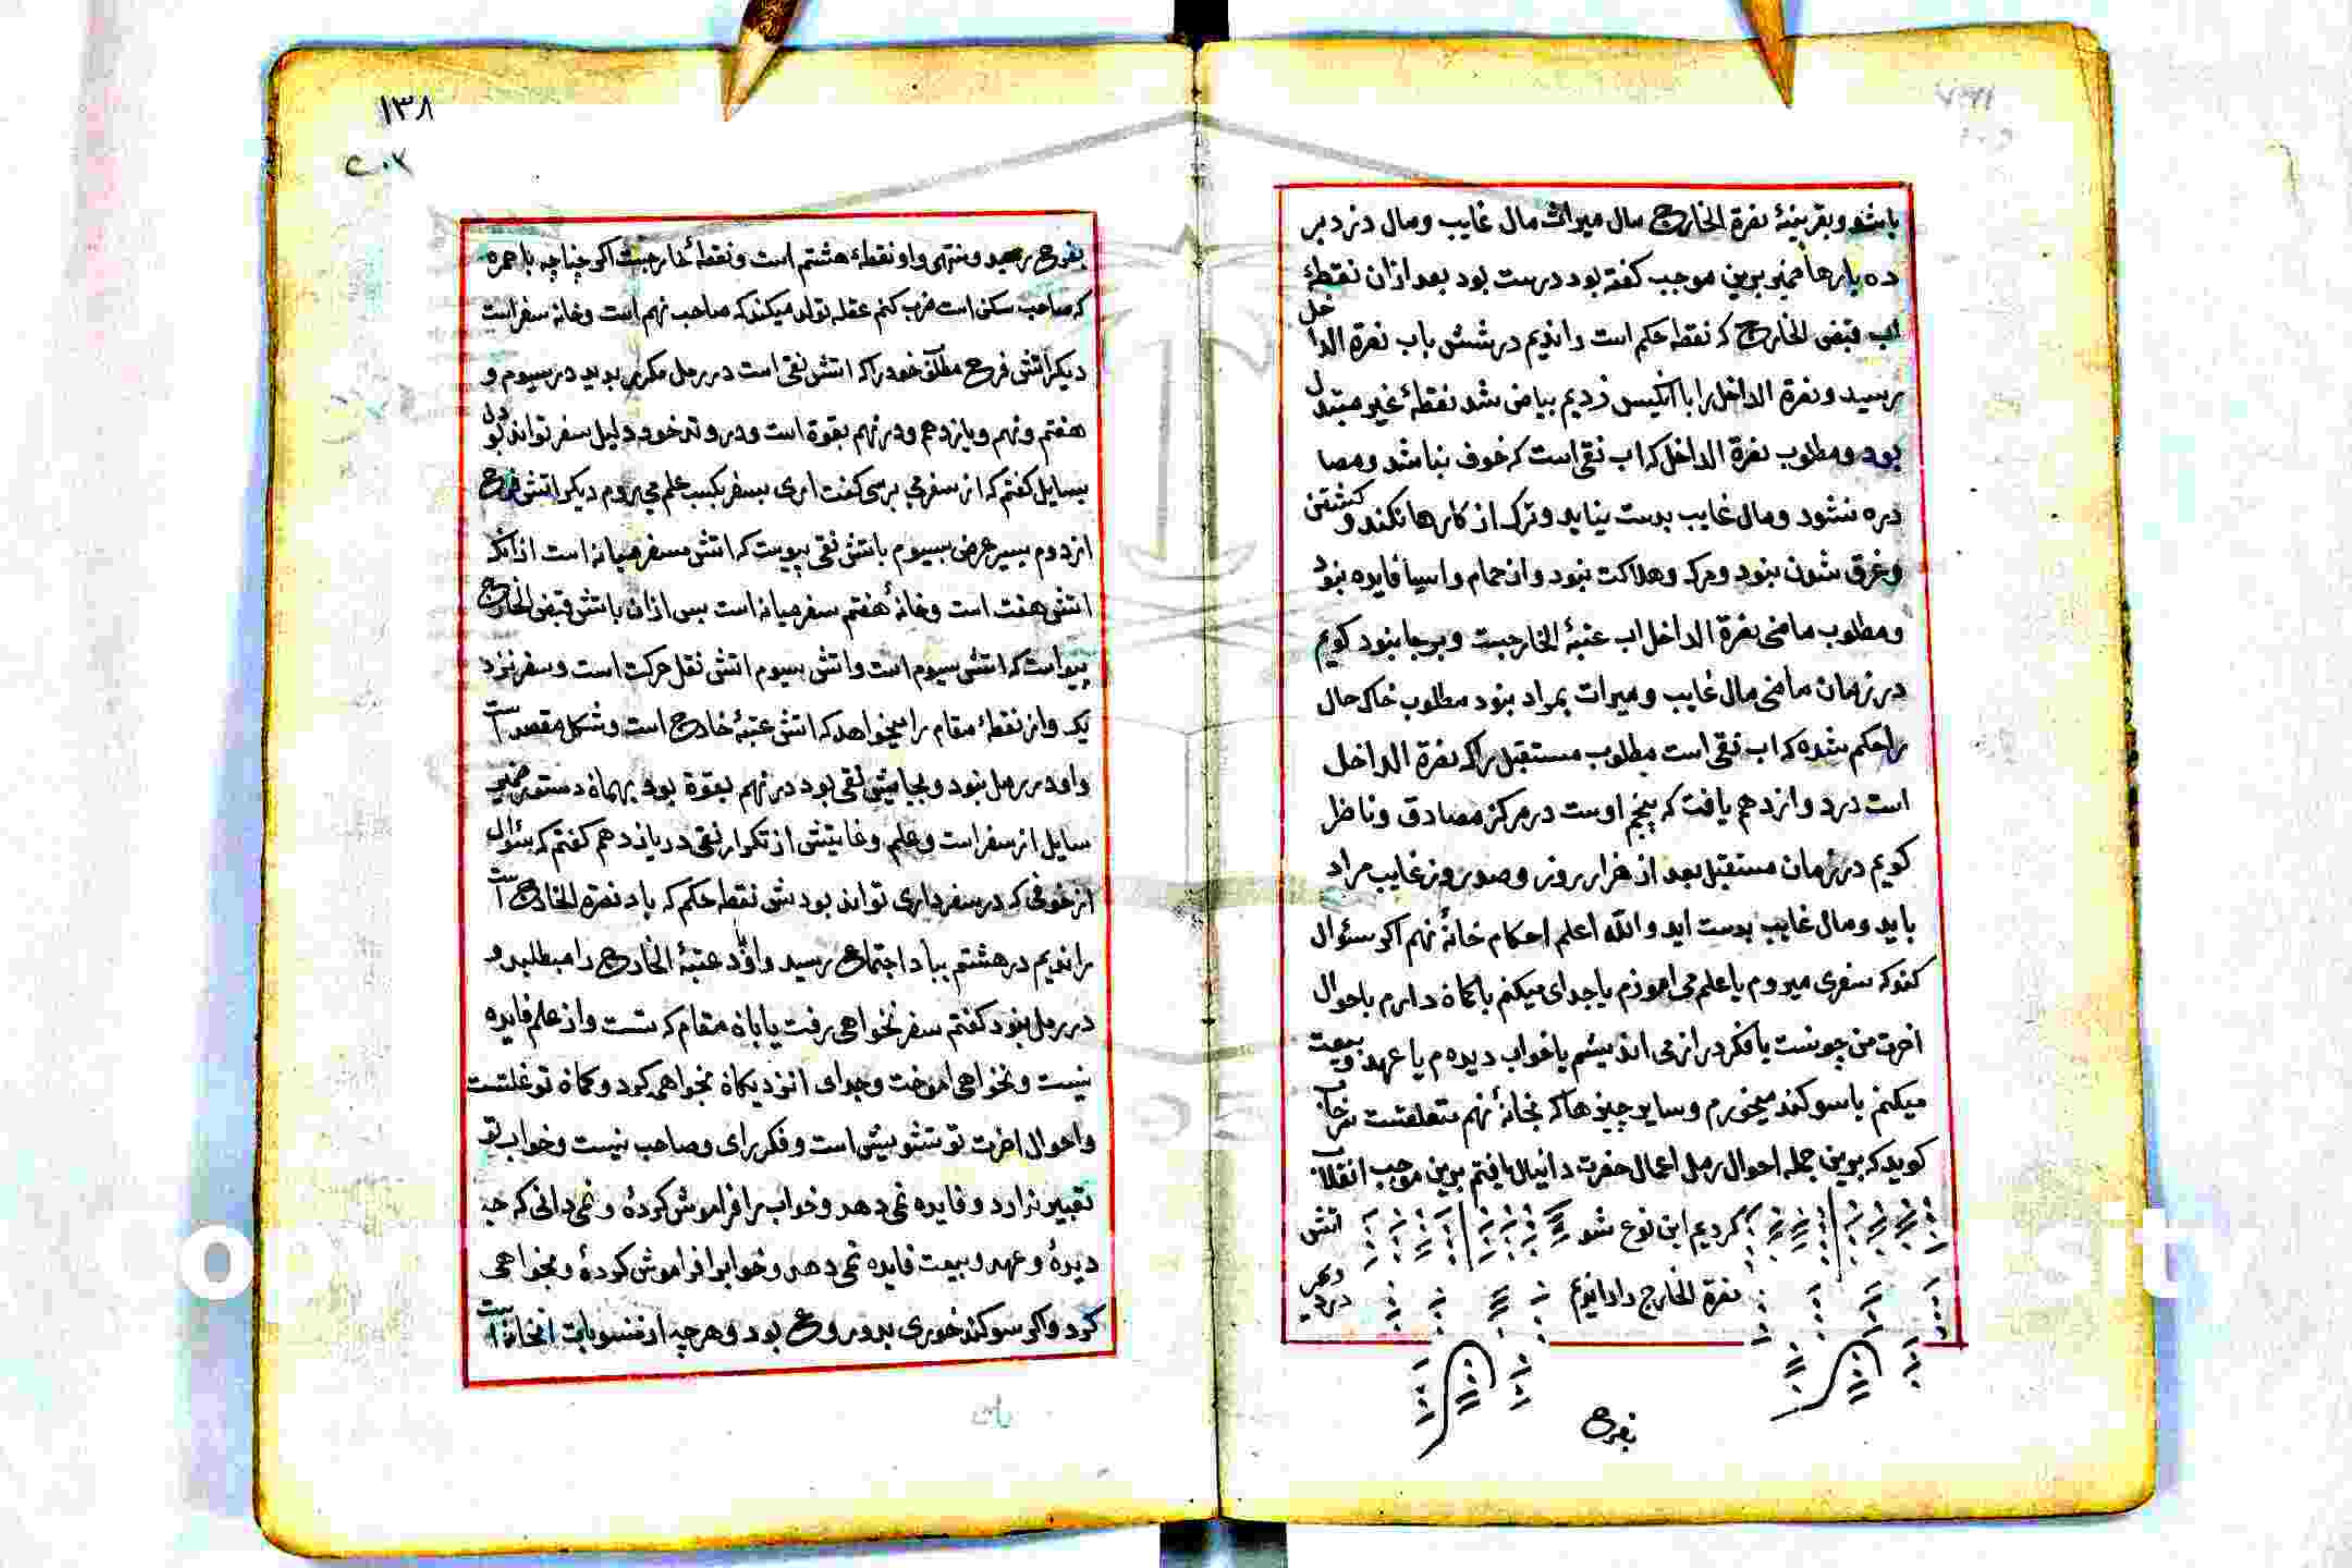 باشد و بقرینهٔ نصرة الخارج مال میراث مال غایب و مال دزد بر
ده یارها ضمیر برین موجب کفته بود درست بود بعد ازان نقطهٔ
اب قبض الخارج که نقطه حکم است راندیم درشش باب نصرة الداخل
رسید و نصرة الداخل را با انکیس زدیم بیاض شد نقطهٔ غیر مبتدل
بود و مطلوب نصرة الداخل که اب نقی است که خوف نباشد و مصا
دره نشود و مال غایب بدست نیاید و ترک از کارها نکند و کشتن
و غرق شدن نبود و مرک و هلاکت نبود و از حمام و اسیا فایده نبود
و مطلوب ماضی نصرة الداخل اب عتبهٔ الخارجست و برجا نبود کویم
در زمان ماضی مال غایب و میراث بمراد نبود مطلوب خاک حال
را حکم شده که اب نقی است مطلوب مستقبل را که نصرة الداخل
است درد وازدهم یافت که پنجم اوست در مرکز مصادق و ناظر
کویم در زمان مستقبل بعد از هزار روز و صد روز غایب مراد
باید و مال غایب بدست اید والله اعلم احکام خانهٔ نهم اکر سئوال
کند که سفری میروم یا علم می اموزم یا جدای میکنم یا کماه دارم یا احوال
اخرت من چونست یا فکر دراز می اندیشم یا خواب دیده م یا عهد و بیعت
میکنم یا سوکند میخورم و سایر چیزها که بخانهٔ نهم متعلقست
کوید که برین جمله احوال رمل اعمال حضرت دانیال یافتم برین موجب انقلاب
کردیم این نوع شد اتش
نصرة الخارج را راندیم
بفرح
۱۳۸
۲۰۷
بفرح رسید و منتهی و او نقطهٔ هشتم است و نقطهٔ خارجست اکر چنانچه با حمره
که صاحب سکن است ضرب کنم عقله تولد میکند که صاحب نهم است و خانه سفر است
دیکر اتش فرح مطلق خود را که اتش نقی است در رمل مکرر بدید در سیوم و
هفتم و نهم و یازدهم و در نهم بقوة است و در وتد خود دلیل سفر تواند بود
بسایل کفتم که از سفر می پرسی کفت اری بسفر بکسب علم می روم دیکر اتش فرح
از دوم بسیر عرض بسیوم باتش نقی پیوست که اتش سفر میانه است ازانکه
اتش هفت است و خانهٔ هفتم سفر میانه است پس ازان باتش قبض الخارج
پیواست که اتش سیوم است و اتش سیوم اتش نقل حرکت است و سفر نزد
یک و از نقطهٔ مقام را میخواهد که اتش عتبهٔ خارج است و شکل مقصد است
و او در رمل نبود و بجایش نقی بود در نهم بقوة بود بهماه دستور ضمیر
سایل از سفر است و علم و غایتش از تکرار نقی در یازدهم کفتم که سئوال
از خوفی که در سفر داری تواند بودش نقطه حکم که باد نصرة الخارج است
راندیم در هشتم بباد اجتماع رسید و او باد عتبهٔ الخارج را مطلبد و
در رمل نبود کفتم سفر نخواهی رفت یا باه مقام که تست و از علم فایده
نیست و نخواهی اموخت و جدای انزدیکاه نخواهی کرد و کماه تو غلتست
و احوال اخرت تو تشویش است و فکر رای و صاحب نیست و خواب تو
تعبیر ندارد و فایده نمی دهد و خواب را فراموش کردهٔ و نمی دانی که چه
دیدهٔ و عهد و بیعت فایده نمی دهد و خواب را فراموش کردهٔ و نخواهی
کرد و اکر سوکند خوری بدروغ بود و هرچه از منسوبات انخانه است